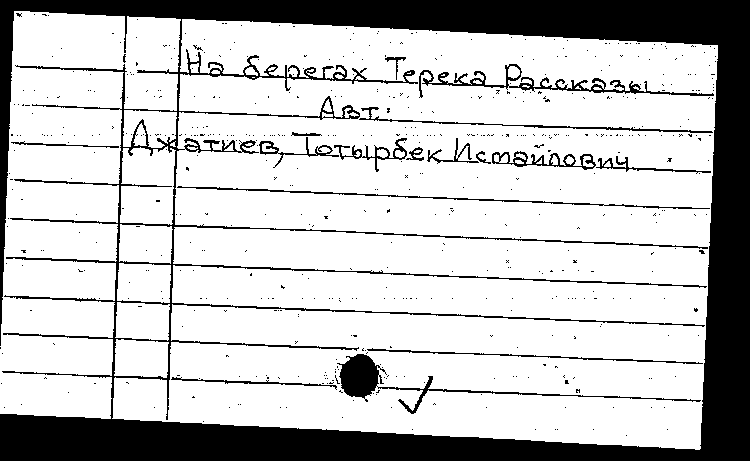 На берегах Терека Рассказы
Авт.:
Джатиев, Тотырбек Исмайлович